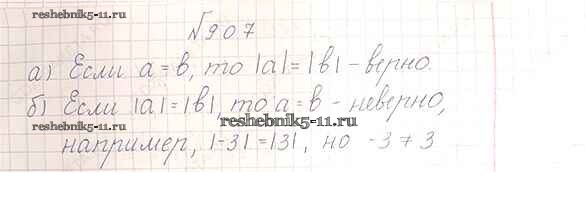 №907
reshebnik5-11.ru
а) Если a = в, то |a| = |в| - верно.
б) Если |a| = |в|, то a = в - неверно,
reshebnik5-11.ru reshebnik5-11.ru
например, |-3| = |3|, но -3 ≠ 3